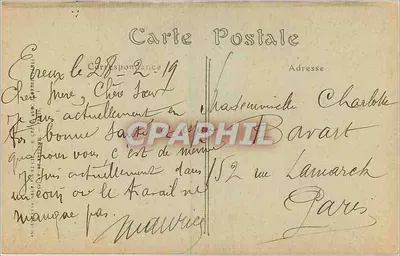 Carte Postale
Correspondance
Adresse
Evreux le 28-2-19
Cher frère, Chère sœur
je suis actuellement en
très bonne santé
que pour vous c'est de même
je suis actuellement dans
un coin où le travail ne
manque pas.
Maurice
Mademoiselle Charlotte
Bavart
152 rue Lamarck
Paris
CPAPHIL